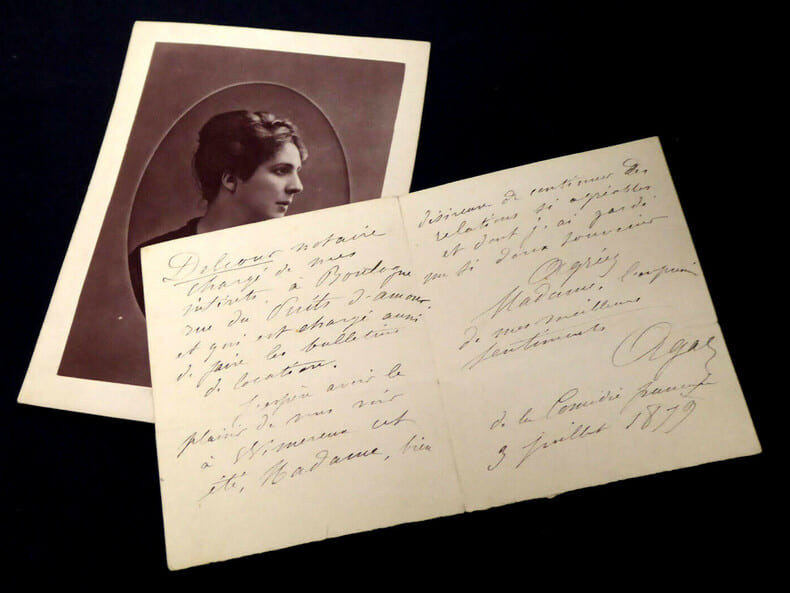 Delcour notaire
chargé de mes
intérêts à Boulogne
rue du Puits d'amour
et qui est chargé aussi
de faire les bulletins
de location.
J'espère avoir le
plaisir de vous voir
à Wimereux cet
été, Madame, bien
désireuse de continuer des
relations si agréables
et dont j'ai gardé
un si doux souvenir
Agréez
Madame, l'expression
de mes meilleurs
sentiments
Agar
de la Comédie française
3 juillet 1879